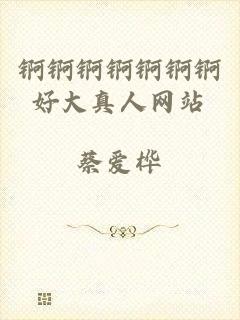 锕锕锕锕锕锕锕
好大真人网站
蔡爱桦